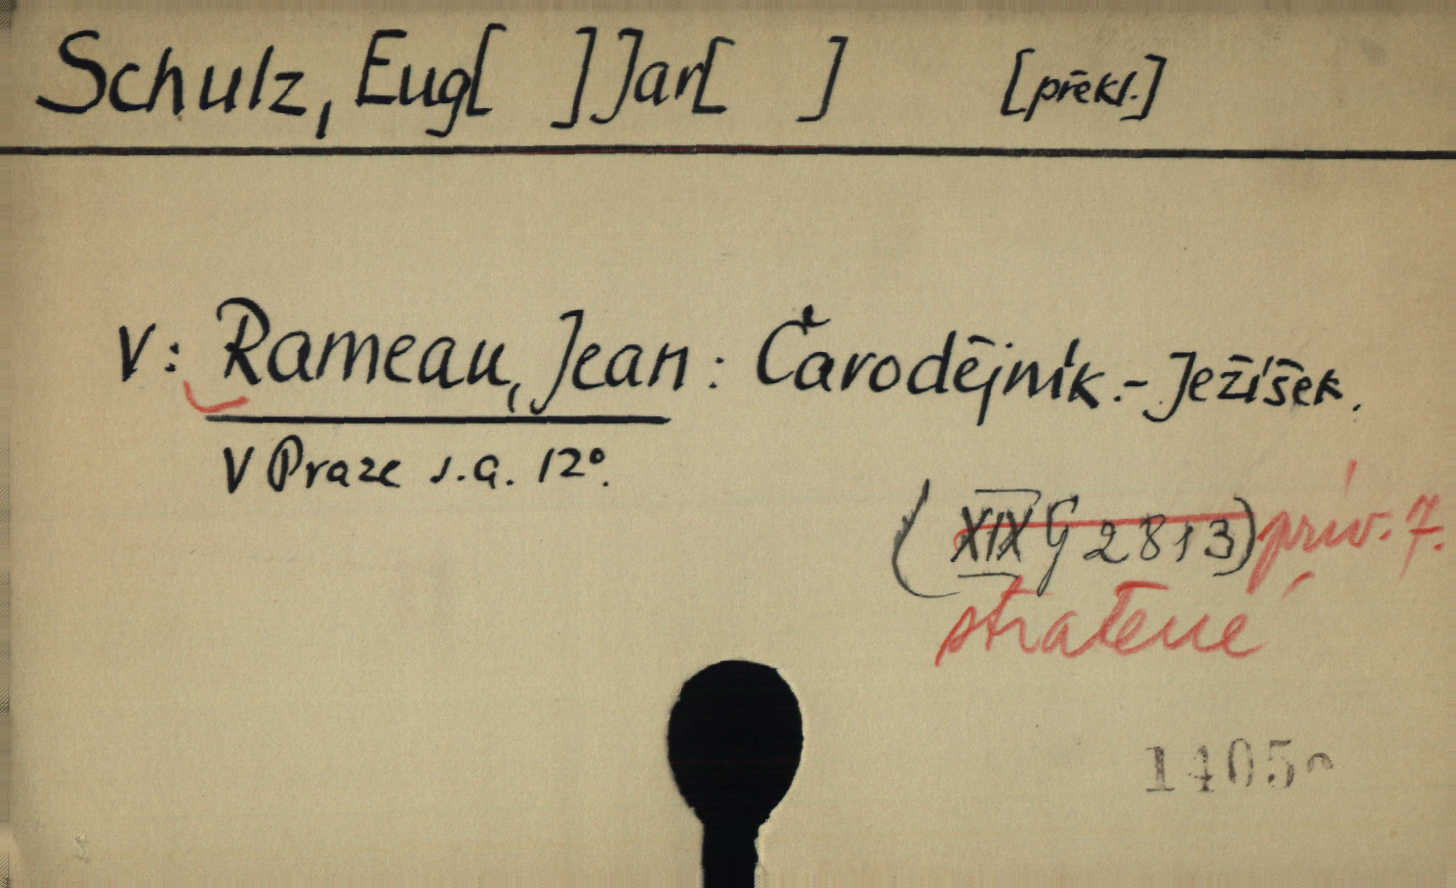 Schulz, Eug[ ] Jar[ ] [překl.]
V: Rameau, Jean: Čarodějník. - Ježíšek.
V Praze s.a. 12°.
(XIX G 2813) prív. 7.
stratené
1405